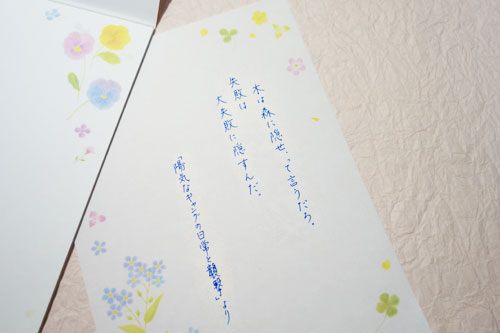 木は森に隠せ、って言うだろ。
失敗は
大失敗に隠すんだ。
『陽気なギャングの日常と襲撃』より